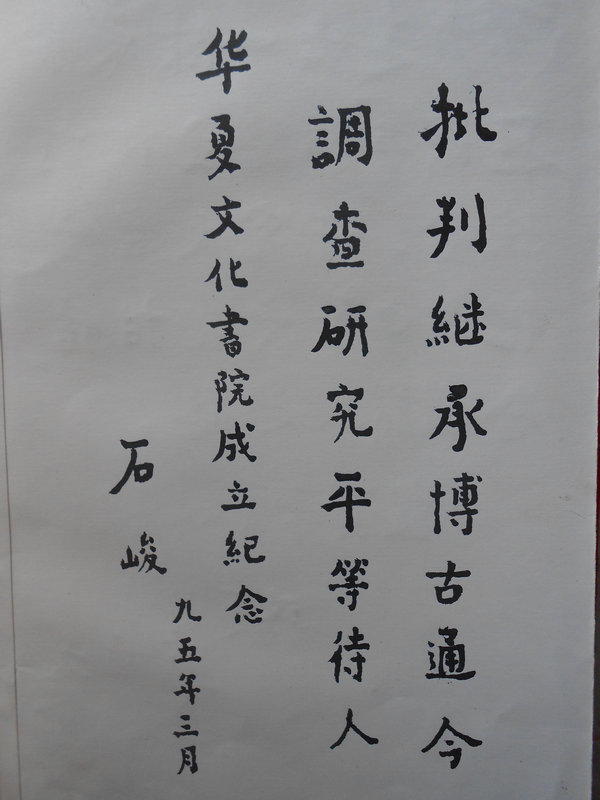 批判継承博古通今
調查研究平等待人
华夏文化書院成立紀念
石峻
九五年三月